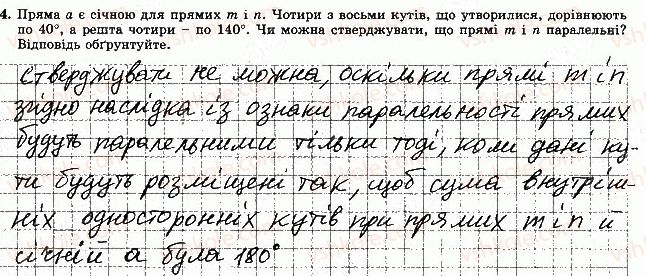 4. Пряма a є січною для прямих m і n. Чотири з восьми кутів, що утворилися, дорівнюють
по 40°, а решта чотири – по 140°. Чи можна стверджувати, що прямі m і n паралельні?
Відповідь обґрунтуйте.
Стверджувати не можна, оскільки прямі m і n
згідно наслідка із ознаки паралельності прямих
будуть паралельними тільки тоді, коли дані ку-
ти будуть розміщені так, щоб сума внутріш-
ніх односторонніх кутів при прямих m і n й
січній a була 180°